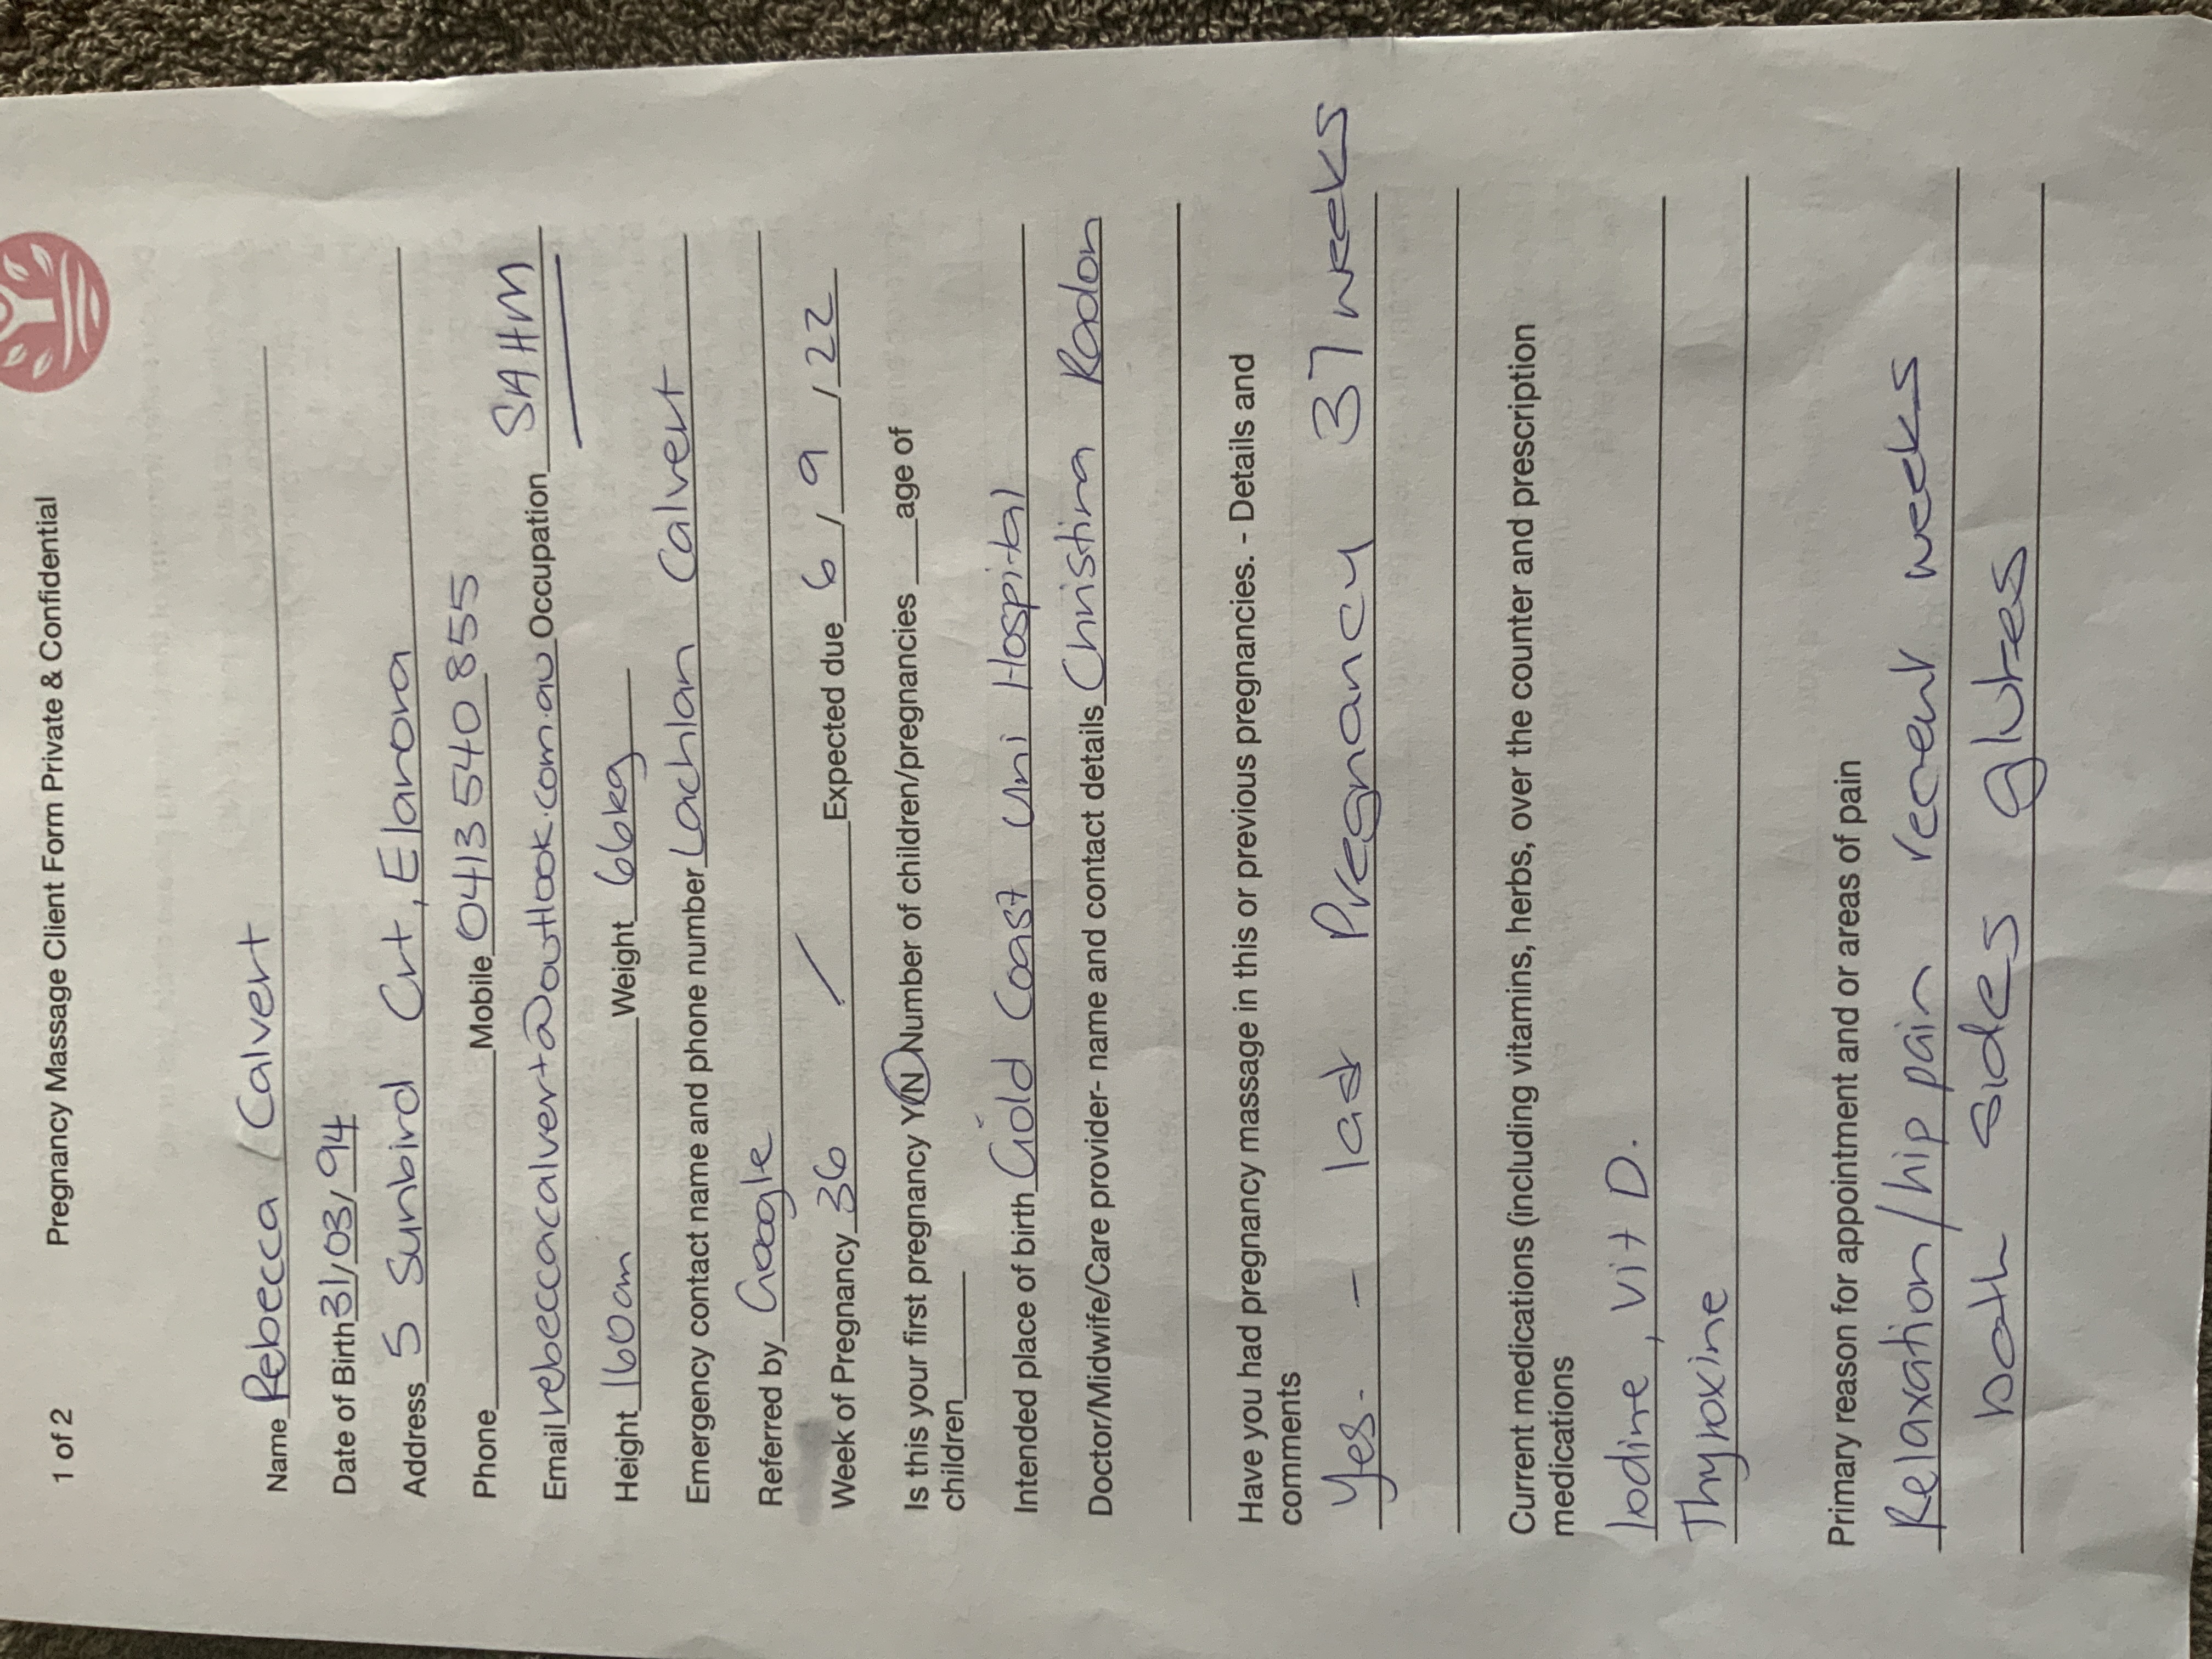 1 of 2 Pregnancy Massage Client Form Private & Confidential
Name Rebecca Calvert
Date of Birth 31/03/94
Address 5 Sunbird Crt, Elanora
Phone Mobile 0413 540 855
Email rebeccacalverta@outlook.com.au Occupation SAHM
Height 160cm Weight 66kg
Emergency contact name and phone number Lachlan Calvert
Referred by Google
Week of Pregnancy 36 / Expected due 6 / 9 / 22
Is this your first pregnancy Y/N Number of children/pregnancies ___age of
children
Intended place of birth Gold Coast Uni Hospital
Doctor/Midwife/Care provider- name and contact details Christina Rodon
Have you had pregnancy massage in this or previous pregnancies. - Details and
comments
Yes. - last Pregnancy 37 weeks
Current medications (including vitamins, herbs, over the counter and prescription
medications
Iodine, Vit D.
Thyroxine
Primary reason for appointment and or areas of pain
Relaxation/hip pain recent weeks
both sides glutes